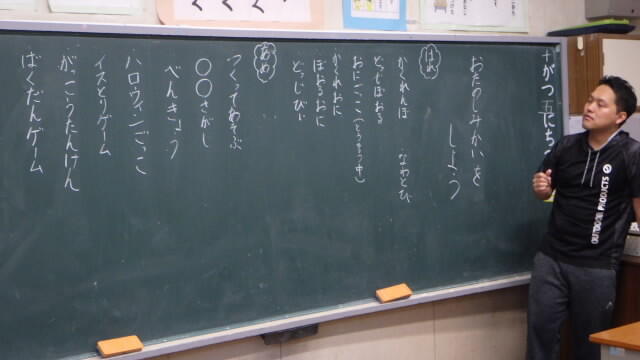 十がつ五にち
おたのしみかいを
しよう
はれ
かくれんぼ　なわとび
どっじぼおる
おにごっこ(とうそう中)
かくれおに
ぼおるおに
どっじびい
あめ
つくってあそぶ
〇〇さがし
べんきょう
ハロウィンごっこ
イスとりゲーム
がっこうたんけん
ばくだんゲーム
OUTDOOR PRODUCTS